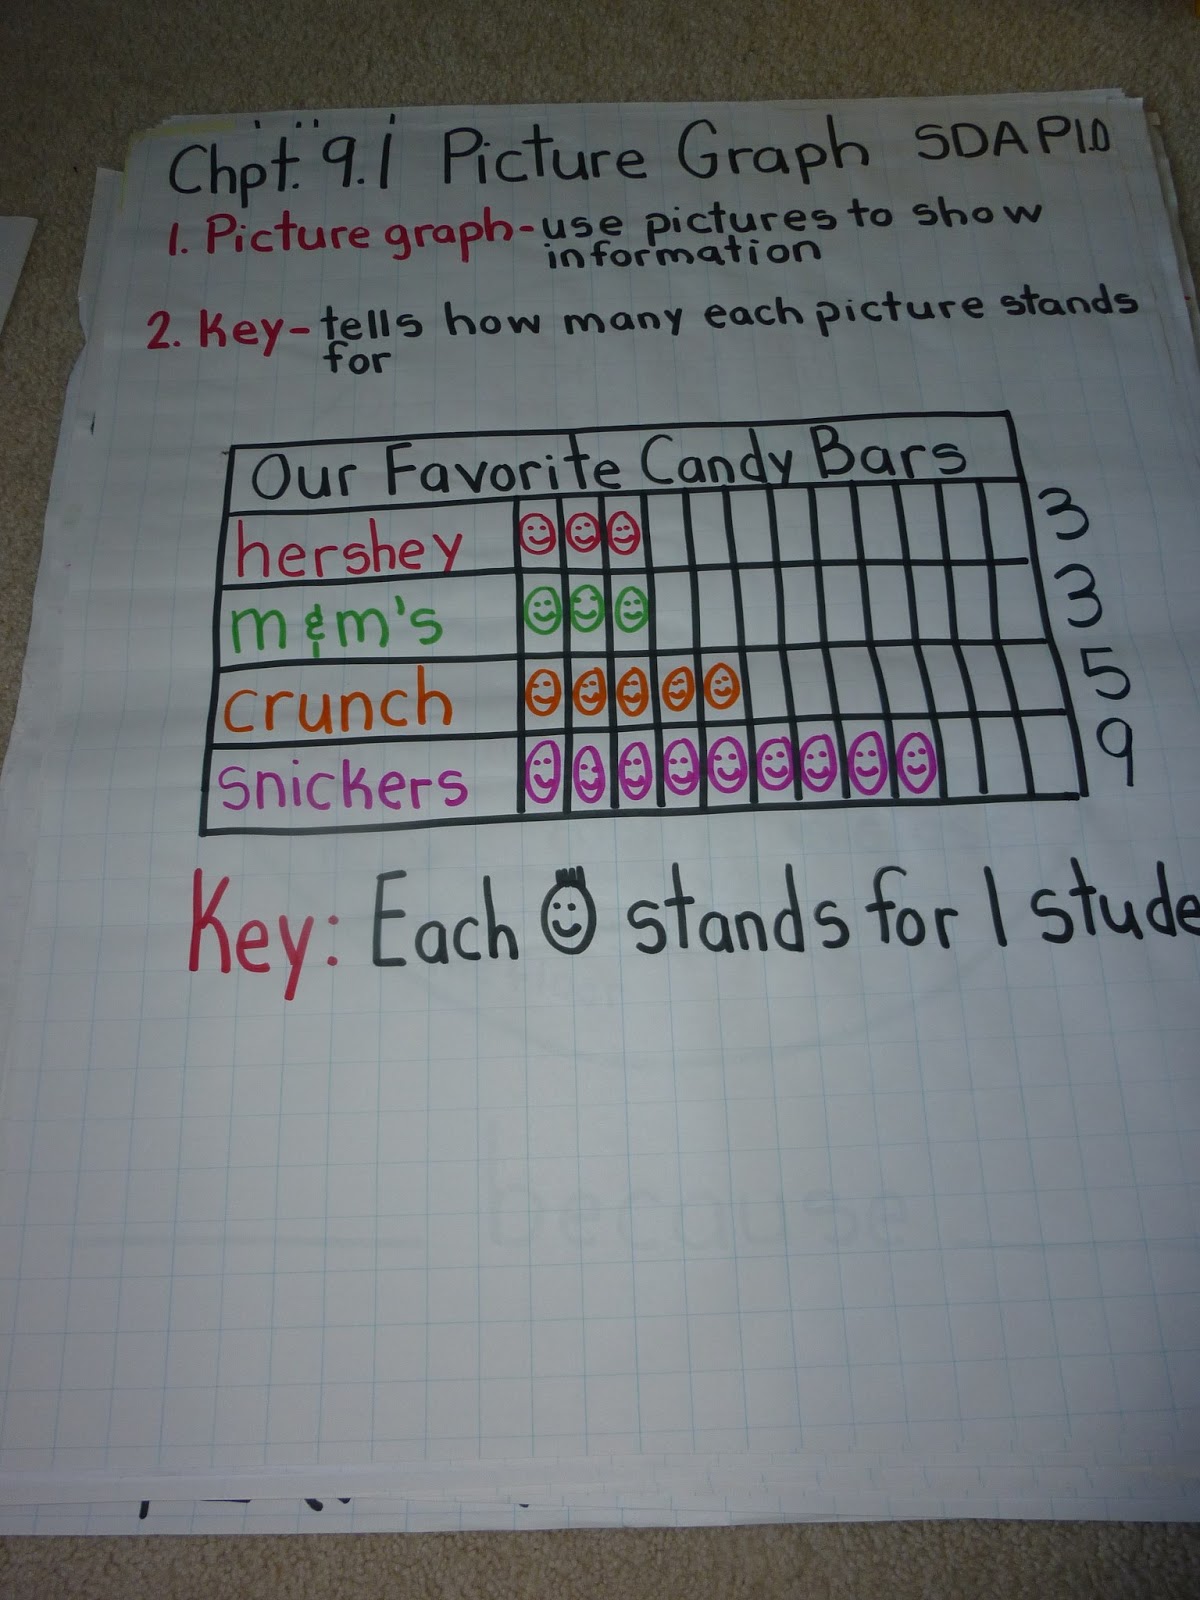 Chpt. 9.1 Picture Graph SDAP1.0
1. Picture graph - use pictures to show
information
2. Key - tells how many each picture stands
for
Our Favorite Candy Bars
hershey 3
m&m's 3
crunch 5
snickers 9
Key: Each stands for 1 stude
because